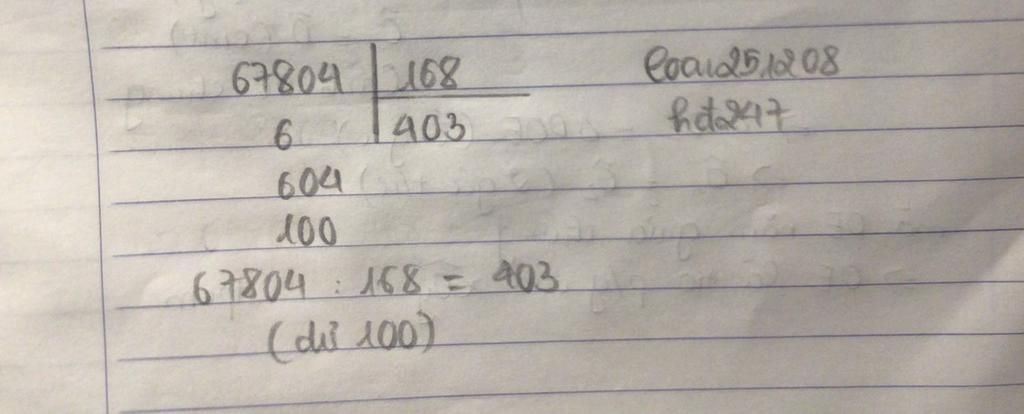 67804 168 loai251208
6 403 hd247
604
100
67804 : 168 = 403
(dư 100)